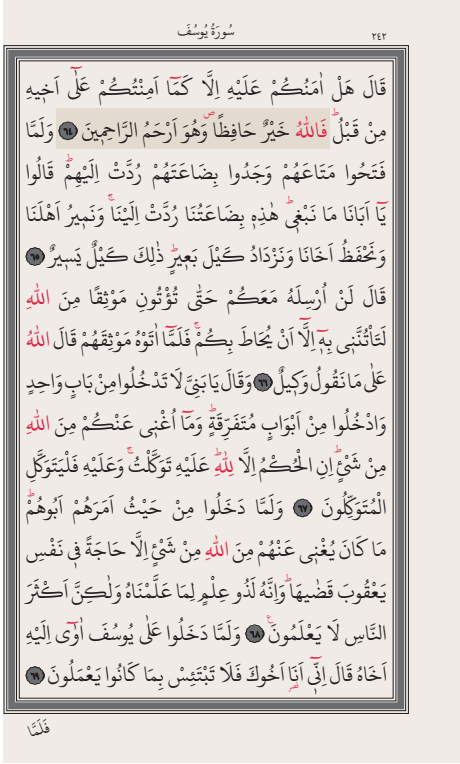 سُورَةُ يُوسُفَ
٢٤٢
قَالَ هَلْ اٰمَنُكُمْ عَلَيْهِ اِلَّا كَمَٓا اَمِنْتُكُمْ عَلٰٓى اَخٖيهِ
مِنْ قَبْلُؕ فَاللّٰهُ خَيْرٌ حَافِظًاࣕ وَهُوَ اَرْحَمُ الرَّاحِمٖينَ ﴿٦٤﴾ وَلَمَّا
فَتَحُوا مَتَاعَهُمْ وَجَدُوا بِضَاعَتَهُمْ رُدَّتْ اِلَيْهِمْؕ قَالُوا
يَٓا اَبَانَا مَا نَبْغٖيؕ هٰذِهٖ بِضَاعَتُنَا رُدَّتْ اِلَيْنَاۚ وَنَمٖيرُ اَهْلَنَا
وَنَحْفَظُ اَخَانَا وَنَزْدَادُ كَيْلَ بَعٖيرٍؕ ذٰلِكَ كَيْلٌ يَسٖيرٌ ﴿٦٥﴾
قَالَ لَنْ اُرْسِلَهُ مَعَكُمْ حَتّٰى تُؤْتُونِ مَوْثِقًا مِنَ اللّٰهِ
لَتَأْتُنَّنٖي بِهٖٓ اِلَّٓا اَنْ يُحَاطَ بِكُمْۚ فَلَمَّٓا اٰتَوْهُ مَوْثِقَهُمْ قَالَ اللّٰهُ
عَلٰى مَا نَقُولُ وَكٖيلٌ ﴿٦٦﴾ وَقَالَ يَا بَنِيَّ لَا تَدْخُلُوا مِنْ بَابٍ وَاحِدٍ
وَادْخُلُوا مِنْ اَبْوَابٍ مُتَفَرِّقَةٍؕ وَمَٓا اُغْنٖي عَنْكُمْ مِنَ اللّٰهِ
مِنْ شَيْءٍؕ اِنِ الْحُكْمُ اِلَّا لِلّٰهِؕ عَلَيْهِ تَوَكَّلْتُۚ وَعَلَيْهِ فَلْيَتَوَكَّلِ
الْمُتَوَكِّلُونَ ﴿٦٧﴾ وَلَمَّا دَخَلُوا مِنْ حَيْثُ اَمَرَهُمْ اَبُوهُمْؕ
مَا كَانَ يُغْنٖي عَنْهُمْ مِنَ اللّٰهِ مِنْ شَيْءٍ اِلَّا حَاجَةً فٖي نَفْسِ
يَعْقُوبَ قَضٰيهَاؕ وَاِنَّهُ لَذُو عِلْمٍ لِمَا عَلَّمْنَاهُ وَلٰكِنَّ اَكْثَرَ
النَّاسِ لَا يَعْلَمُونَۚ ﴿٦٨﴾ وَلَمَّا دَخَلُوا عَلٰى يُوسُفَ اٰوٰٓى اِلَيْهِ
اَخَاهُ قَالَ اِنّٖٓي اَنَا اَخُوكَ فَلَا تَبْتَئِسْ بِمَا كَانُوا يَعْمَلُونَ ﴿٦٩﴾
فَلَمَّا